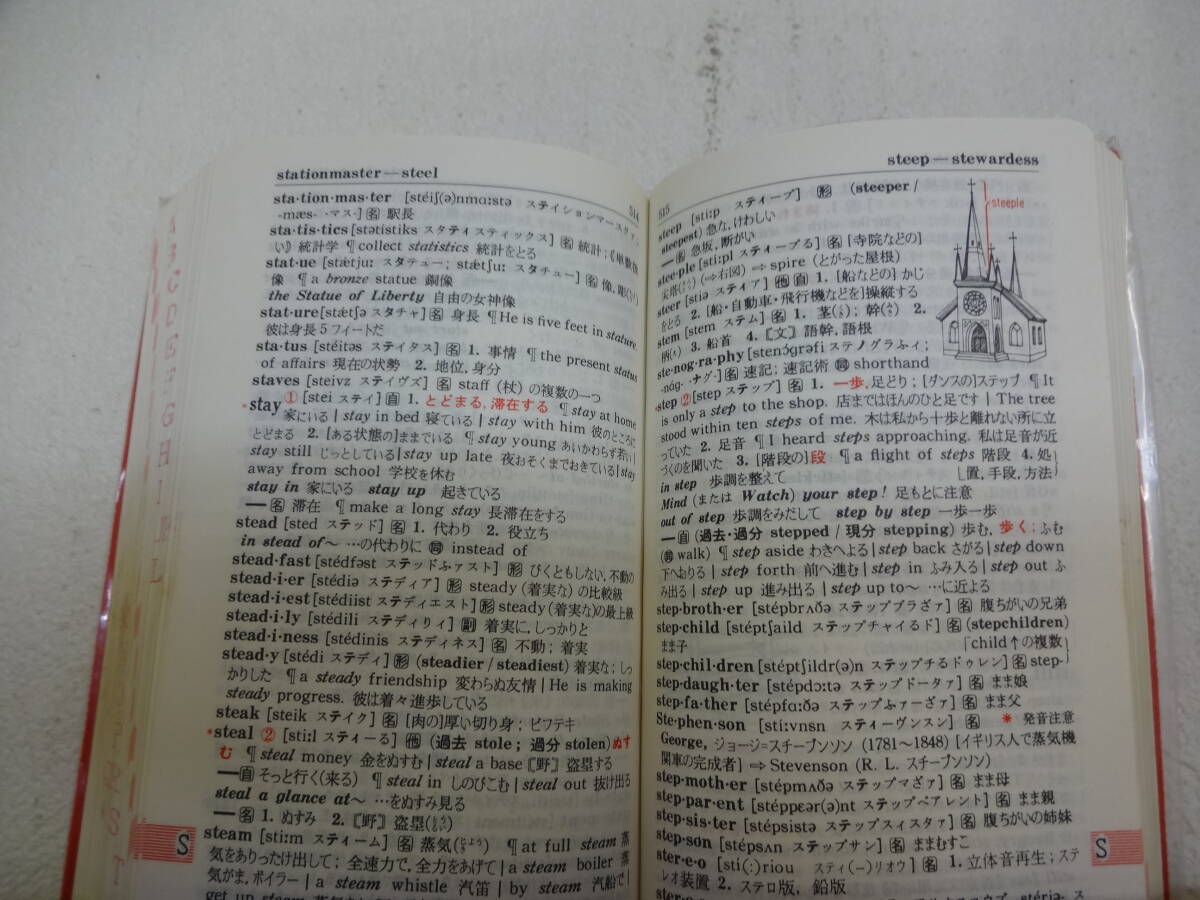 stationmaster — steel
514
sta·tion·mas·ter [stéiʃ(ə)nmɑːstə ステイションマースタァ,
-mæs- -マス-] 名 駅長
sta·tis·tics [stətístiks スタティスティックス] 名 統計;《単数扱
い》統計学 ¶collect statistics 統計をとる
stat·ue [stætjuː スタテュー; stætʃuː スタチュー] 名 像,彫
像 ¶a bronze statue 銅像
the Statue of Liberty 自由の女神像
stat·ure [stætʃə スタチャ] 名 身長 ¶He is five feet in stature.
彼は身長5フィートだ
sta·tus [stéitəs ステイタス] 名 1. 事情 ¶the present status
of affairs 現在の状勢 2. 地位, 身分
staves [steivz スティヴズ] 名 staff (杖) の複数の一つ
*stay ① [stei ステイ] 自 1. とどまる, 滞在する ¶stay at home
家にいる | stay in bed 寝ている | stay with him 彼のところに
とどまる 2. [ある状態の]ままでいる ¶stay young あいかわらず若い |
stay still じっとしている | stay up late 夜おそくまでおきている | stay
away from school 学校を休む
stay in 家にいる stay up 起きている
—名 滞在 ¶make a long stay 長滞在をする
stead [sted ステッド] 名 1. 代わり 2. 役立ち
in stead of~ …の代わりに 同 instead of
stead·fast [stédfəst ステッドふァスト] 形 びくともしない, 不動の
stead·i·er [stédiə ステディア] 形 steady (着実な) の比較級
stead·i·est [stédiist ステディエスト] 形 steady (着実な)の最上級
stead·i·ly [stédili ステディりィ] 副 着実に, しっかりと
stead·i·ness [stédinis ステディネス] 名 不動; 着実
stead·y [stédi ステディ] 形 (steadier / steadiest) 着実な; しっ
かりした ¶a steady friendship 変わらぬ友情 | He is making
steady progress. 彼は着々進歩している
steak [steik ステイク] 名 [肉の]厚い切り身; ビフテキ
*steal ② [stiːl スティーる] 他 (過去 stole; 過分 stolen) ぬす
む ¶steal money 金をぬすむ | steal a base 〖野〗盗塁する
—自 そっと行く(来る) ¶steal in しのびこむ | steal out 抜け出る
steal a glance at~ …をぬすみ見る
—名 1. ぬすみ 2. 〖野〗盗塁(とうるい)
steam [stiːm スティーム] 名 蒸気(じょうき) ¶at full steam 蒸
気をありったけ出して; 全速力で, 全力をあげて | a steam boiler 蒸
気がま, ボイラー | a steam whistle 汽笛 | by steam 汽船で |
S
steep — stewardess
515
steep [stiːp スティープ] 形 (steeper /
steepest) 急な, けわしい
—名 急坂, 断がい
stee·ple [stiːpl スティープる] 名 [寺院などの]
尖塔(せんとう) (⇨右図) ⇨ spire (とがった屋根)
steeple
steer [stiə スティア] 他自 1. [船などの] かじ
をとる 2. [船・自動車・飛行機などを]操縦する
stem [stem ステム] 名 1. 茎(くき); 幹(みき) 2.
柄(え) 3. 船首 4. 〖文〗語幹, 語根
ste·nog·ra·phy [stenɔ́grəfi ステノグラふィ;
-nág- -ナグ-] 名 速記; 速記術 同 shorthand
*step ② [step ステップ] 名 1. 一歩, 足どり; [ダンスの]ステップ ¶It
is only a step to the shop. 店まではほんのひと足です | The tree
stood within ten steps of me. 木は私から十歩と離れない所に立
っていた 2. 足音 ¶I heard steps approaching. 私は足音が近
づくのを聞いた 3. [階段の]段 ¶a flight of steps 階段 4. 処
置, 手段, 方法
in step 歩調を整えて
Mind (または Watch) your step! 足もとに注意
out of step 歩調をみだして step by step 一歩一歩
—自 (過去・過分 stepped / 現分 stepping) 歩む, 歩く; ふむ
(同 walk) ¶step aside わきへよる | step back さがる | step down
下へおりる | step forth 前へ進む | step in ふみ入る | step out ふ
み出る | step up 進み出る | step up to~ …に近よる
step·broth·er [stépbrʌðə ステップブラざァ] 名 腹ちがいの兄弟
step·child [stéptʃaild ステップチャイるド] 名 (stepchildren)
まま子
[child↑の複数]
step·chil·dren [stéptʃildr(ə)n ステップチるドゥレン] 名 step-
step·daugh·ter [stépdɔːtə ステップドータァ] 名 まま娘
step·fa·ther [stépfɑːðə ステップふァーざァ] 名 まま父
Ste·phen·son [stiːvnsn スティーヴンスン] 名 * 発音注意
George, ジョージ=スチーブンソン (1781~1848) [イギリス人で蒸気機
関車の完成者] ⇨ Stevenson (R. L. スチーブンソン)
step·moth·er [stépmʌðə ステップマざァ] 名 まま母
step·par·ent [stéppɛər(ə)nt ステップペアレント] 名 まま親
step·sis·ter [stépsistə ステップスィスタァ] 名 腹ちがいの姉妹
step·son [stépsʌn ステップサン] 名 まままむすこ
ster·e·o [sti(ː)riou スティ(ー)リオウ] 名 1. 立体音再生; ステ
レオ装置 2. ステロ版, 鉛版
S